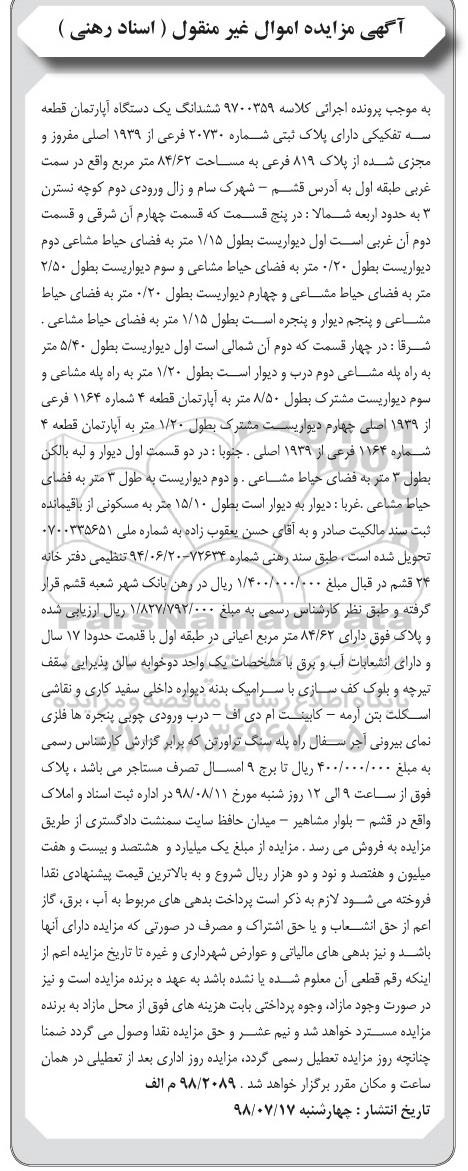 آگهی مزایده اموال غیر منقول ( اسناد رهنی )
به موجب پرونده اجرائی کلاسه ۹۷۰۰۳۵۹ ششدانگ یک دستگاه آپارتمان قطعه
سه تفکیکی دارای پلاک ثبتی شماره ۲۰۷۳۰ فرعی از ۱۹۳۹ اصلی مفروز و
مجزی شده از پلاک ۸۱۹ فرعی به مساحت ۸۴/۶۲ متر مربع واقع در سمت
غربی طبقه اول به آدرس قشم – شهرک سام و زال ورودی دوم کوچه نسترن
۳ به حدود اربعه شمالا : در پنج قسمت که قسمت چهارم آن شرقی و قسمت
دوم آن غربی است اول دیواریست بطول ۱/۱۵ متر به فضای حیاط مشاعی دوم
دیواریست بطول ۰/۲۰ متر به فضای حیاط مشاعی و سوم دیواریست بطول ۲/۵۰
متر به فضای حیاط مشاعی و چهارم دیواریست بطول ۰/۲۰ متر به فضای حیاط
مشاعی و پنجم دیوار و پنجره است بطول ۱/۱۵ متر به فضای حیاط مشاعی .
شرقا : در چهار قسمت که دوم آن شمالی است اول دیواریست بطول ۵/۴۰ متر
به راه پله مشاعی دوم درب و دیوار است بطول ۱/۲۰ متر به راه پله مشاعی و
سوم دیواریست مشترک بطول ۸/۵۰ متر به آپارتمان قطعه ۴ شماره ۱۱۶۴ فرعی
از ۱۹۳۹ اصلی چهارم دیواریست مشترک بطول ۱/۲۰ متر به آپارتمان قطعه ۴
شماره ۱۱۶۴ فرعی از ۱۹۳۹ اصلی . جنوبا : در دو قسمت اول دیوار و لبه بالکن
بطول ۳ متر به فضای حیاط مشاعی . و دوم دیواریست به طول ۳ متر به فضای
حیاط مشاعی .غربا : دیوار به دیوار است بطول ۱۵/۱۰ متر به مسکونی از باقیمانده
ثبت سند مالکیت صادر و به آقای حسن یعقوب زاده به شماره ملی ۰۷۰۰۳۳۵۶۵۱
تحویل شده است ، طبق سند رهنی شماره ۷۲۶۳۴-۹۴/۰۶/۲۰ تنظیمی دفتر خانه
۲۴ قشم در قبال مبلغ ۱/۴۰۰/۰۰۰/۰۰۰ ریال در رهن بانک شهر شعبه قشم قرار
گرفته و طبق نظر کارشناس رسمی به مبلغ ۱/۸۲۷/۷۹۲/۰۰۰ ریال ارزیابی شده
و پلاک فوق دارای ۸۴/۶۲ متر مربع اعیانی در طبقه اول با قدمت حدودا ۱۷ سال
و دارای انشعابات آب و برق با مشخصات یک واحد دوخوابه سالن پذیرایی سقف
تیرچه و بلوک کف سازی با سرامیک بدنه دیواره داخلی سفید کاری و نقاشی
اسکلت بتن آرمه – کابینت ام دی اف – درب ورودی چوبی پنجره ها فلزی
نمای بیرونی آجر سفال راه پله سنگ تراورتن که برابر گزارش کارشناس رسمی
به مبلغ ۴۰۰/۰۰۰/۰۰۰ ریال تا برج ۹ امسال تصرف مستاجر می باشد ، پلاک
فوق از ساعت ۹ الی ۱۲ روز شنبه مورخ ۹۸/۰۸/۱۱ در اداره ثبت اسناد و املاک
واقع در قشم – بلوار مشاهیر – میدان حافظ سایت سمنشت دادگستری از طریق
مزایده به فروش می رسد . مزایده از مبلغ یک میلیارد و هشتصد و بیست و هفت
میلیون و هفتصد و نود و دو هزار ریال شروع و به بالاترین قیمت پیشنهادی نقدا
فروخته می شود لازم به ذکر است پرداخت بدهی های مربوط به آب ، برق، گاز
اعم از حق انشعاب و یا حق اشتراک و مصرف در صورتی که مزایده دارای آنها
باشد و نیز بدهی های مالیاتی و عوارض شهرداری و غیره تا تاریخ مزایده اعم از
اینکه رقم قطعی آن معلوم شده یا نشده باشد به عهد ه برنده مزایده است و نیز
در صورت وجود مازاد، وجوه پرداختی بابت هزینه های فوق از محل مازاد به برنده
مزایده مسترد خواهد شد و نیم عشر و حق مزایده نقدا وصول می گردد ضمنا
چنانچه روز مزایده تعطیل رسمی گردد، مزایده روز اداری بعد از تعطیلی در همان
ساعت و مکان مقرر برگزار خواهد شد . ۹۸/۲۰۸۹ م الف
تاریخ انتشار : چهارشنبه ۹۸/۰۷/۱۷